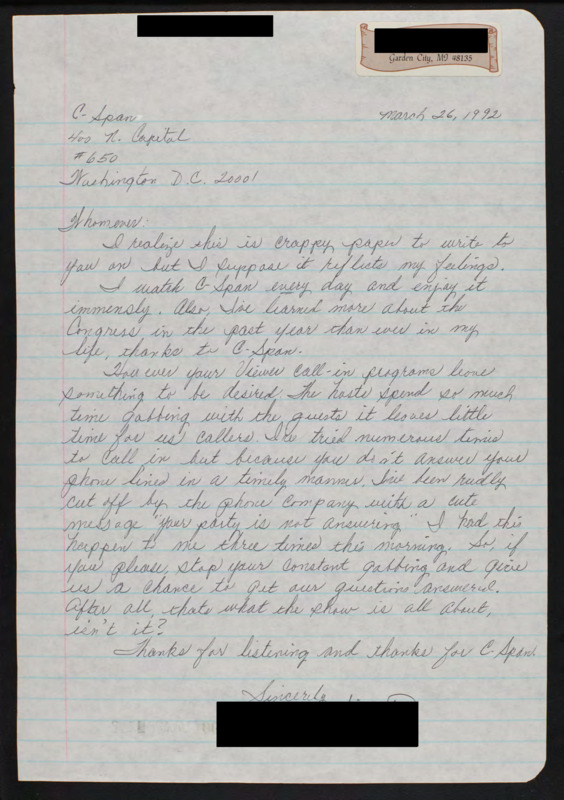 Garden City, MI 48135
C-Span
March 26, 1992
400 N. Capital
#650
Washington D.C. 20001
Whomever:
I realize this is crappy paper to write to
you on but I suppose it reflects my feelings.
I watch C-Span every day and enjoy it
immensly. Also, I've learned more about the
Congress in the past year than ever in my
life, thanks to C-Span.
However your Viewer call-in programs leave
something to be desired. The hosts spend so much
time gabbing with the guests it leaves little
time for us callers. I've tried numerous times
to call in but because you don't answer your
phone lines in a timely manner I've been rudly
cut off by the phone company with a cute
message "your party is not answering" I had this
happen to me three times this morning. So, if
you please, stop your constant gabbing and give
us a chance to get our questions answered.
After all thats what the show is all about,
isn't it?
Thanks for listening and thanks for C-Span.
Sincerely